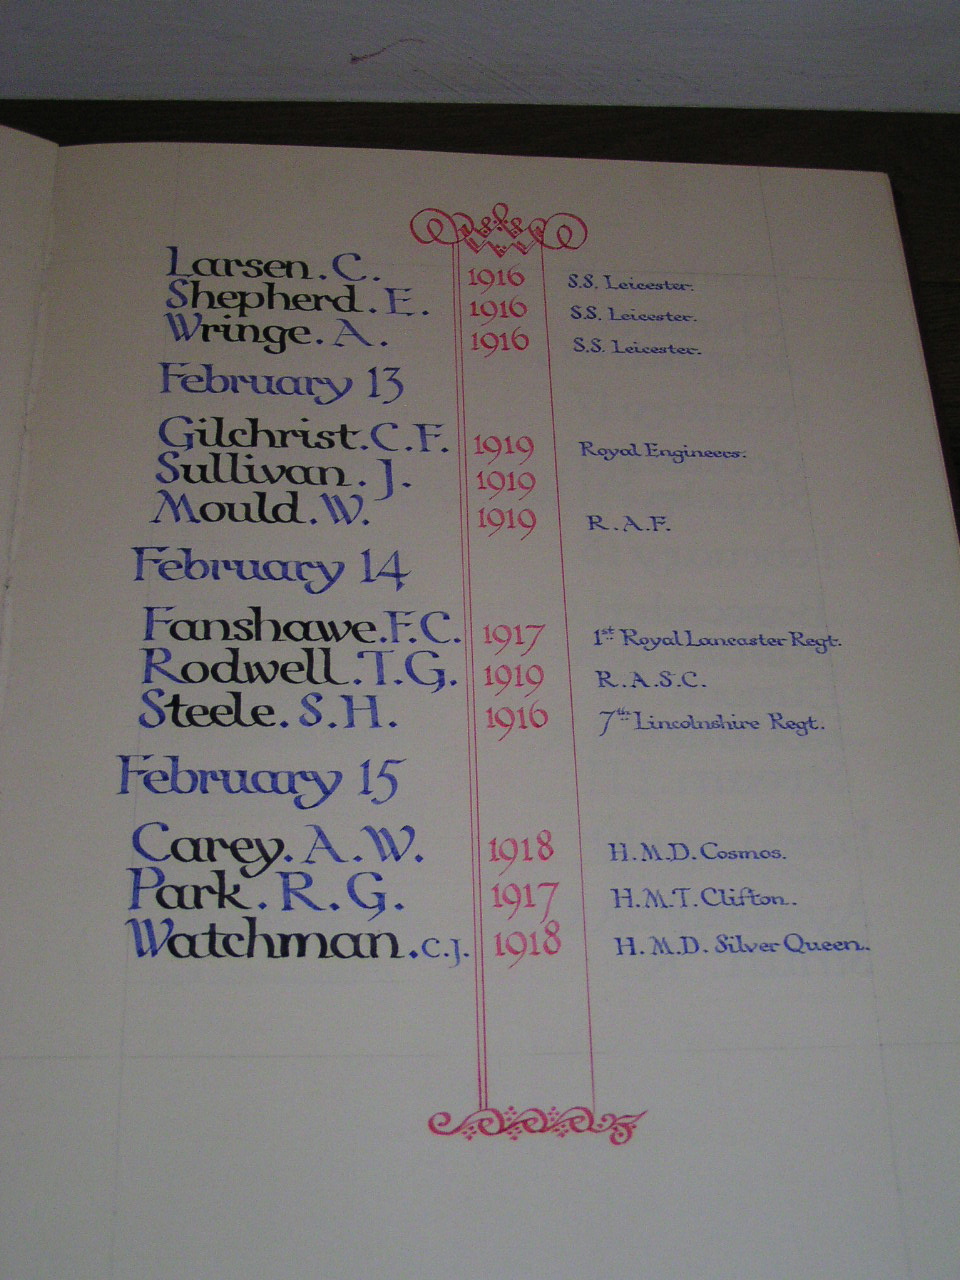 Larsen. C. 1916 S.S. Leicester.
Shepherd. E. 1916 S.S. Leicester.
Wringe. A. 1916 S.S. Leicester.
February 13
Gilchrist. C. F. 1919 Royal Engineers.
Sullivan. J. 1919
Mould. W. 1919 R.A.F.
February 14
Fanshawe. F. C. 1917 1st Royal Lancaster Regt.
Rodwell. T. G. 1919 R.A.S.C.
Steele. S. H. 1916 7th Lincolnshire Regt.
February 15
Carey. A. W. 1918 H.M.D. Cosmos.
Park. R. G. 1917 H.M.T. Clifton.
Watchman. C.J. 1918 H.M.D. Silver Queen.